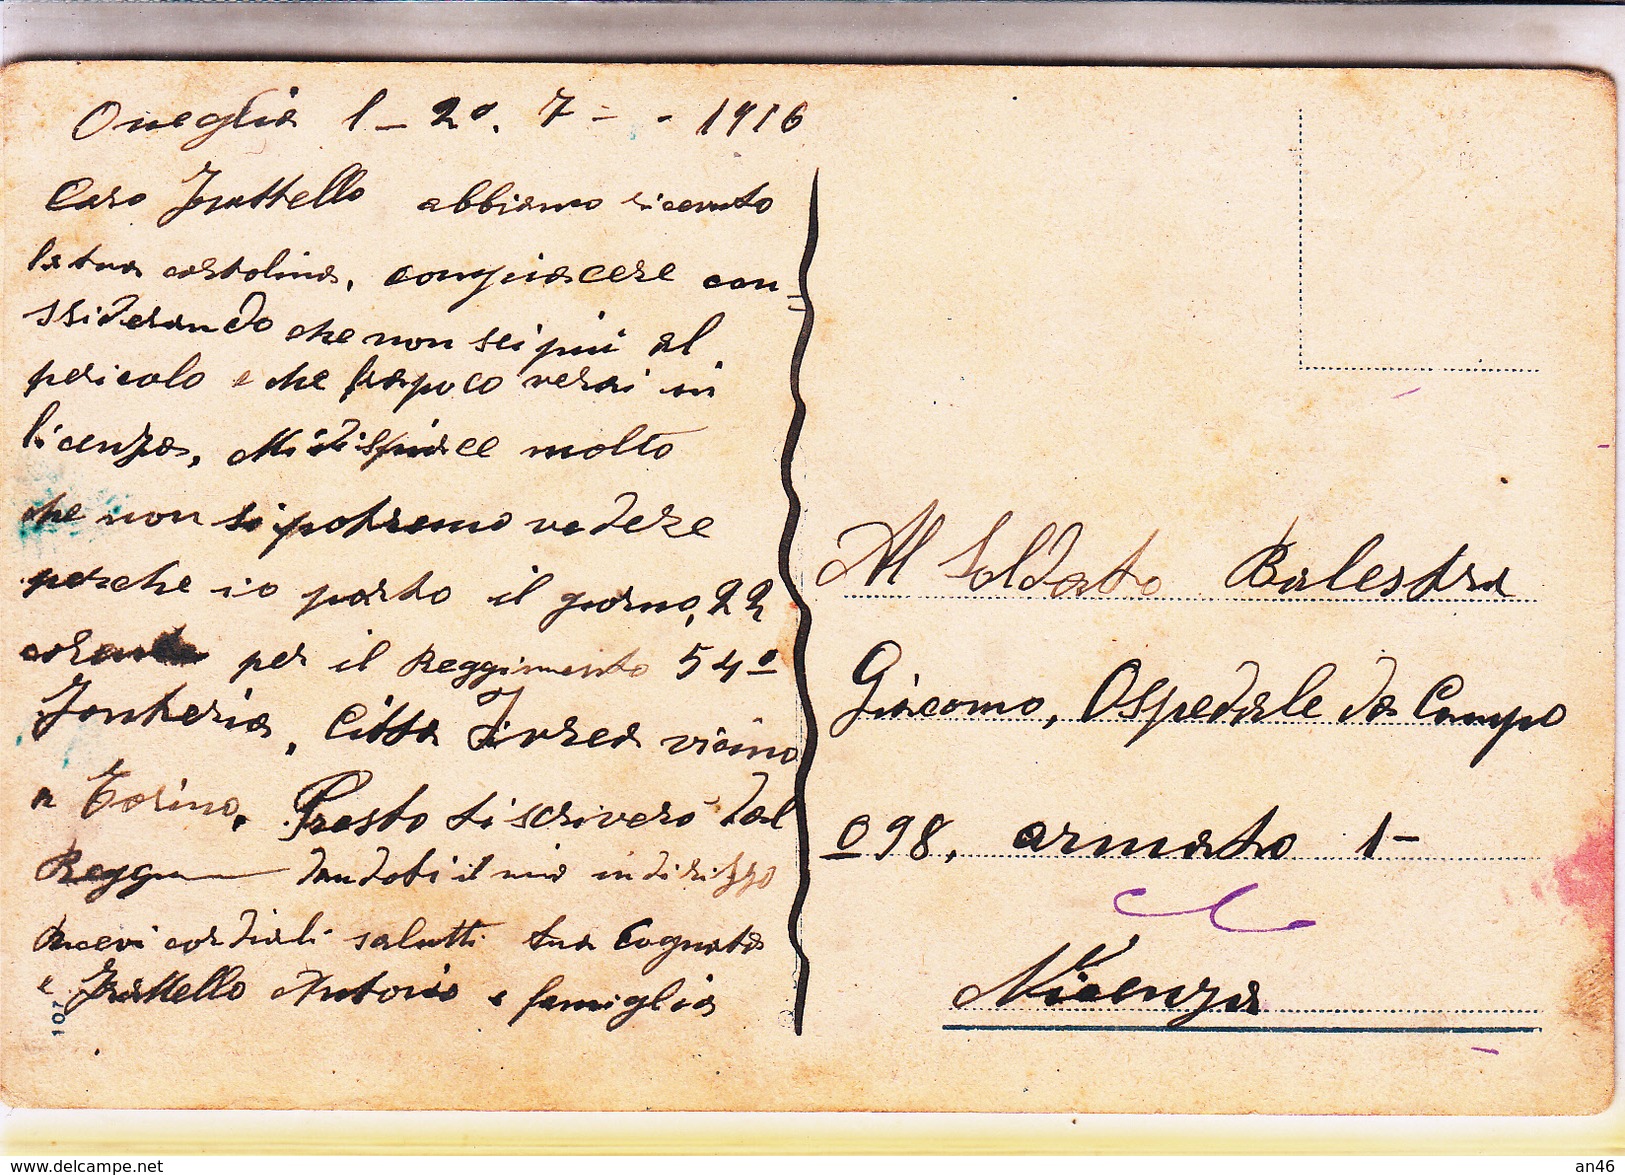 Oneglia l - 20. 7 - - 1916
Caro Frattello abbiamo ricevuto
la tua cartolina, conpiacere con=
ssiderando che non sei piu al
pericolo e che frapoco verai in
licenza, Midispiace molto
che non si potremo vedere
perche io parto il giorno, 22
per il Reggimento 54°
Fanteria, Citta Ivrea vicino
a Torino. Presto ti scrivero dal
Regg dandoti il mio indirizzo
Ricevi cordiali salutti tua Cognata
e Frattello Antonio e famiglia
107
Al Soldato Balestra
Giacomo, Ospedale da Campo
098. armata 1-
Vicenza
www.delcampe.net
an46